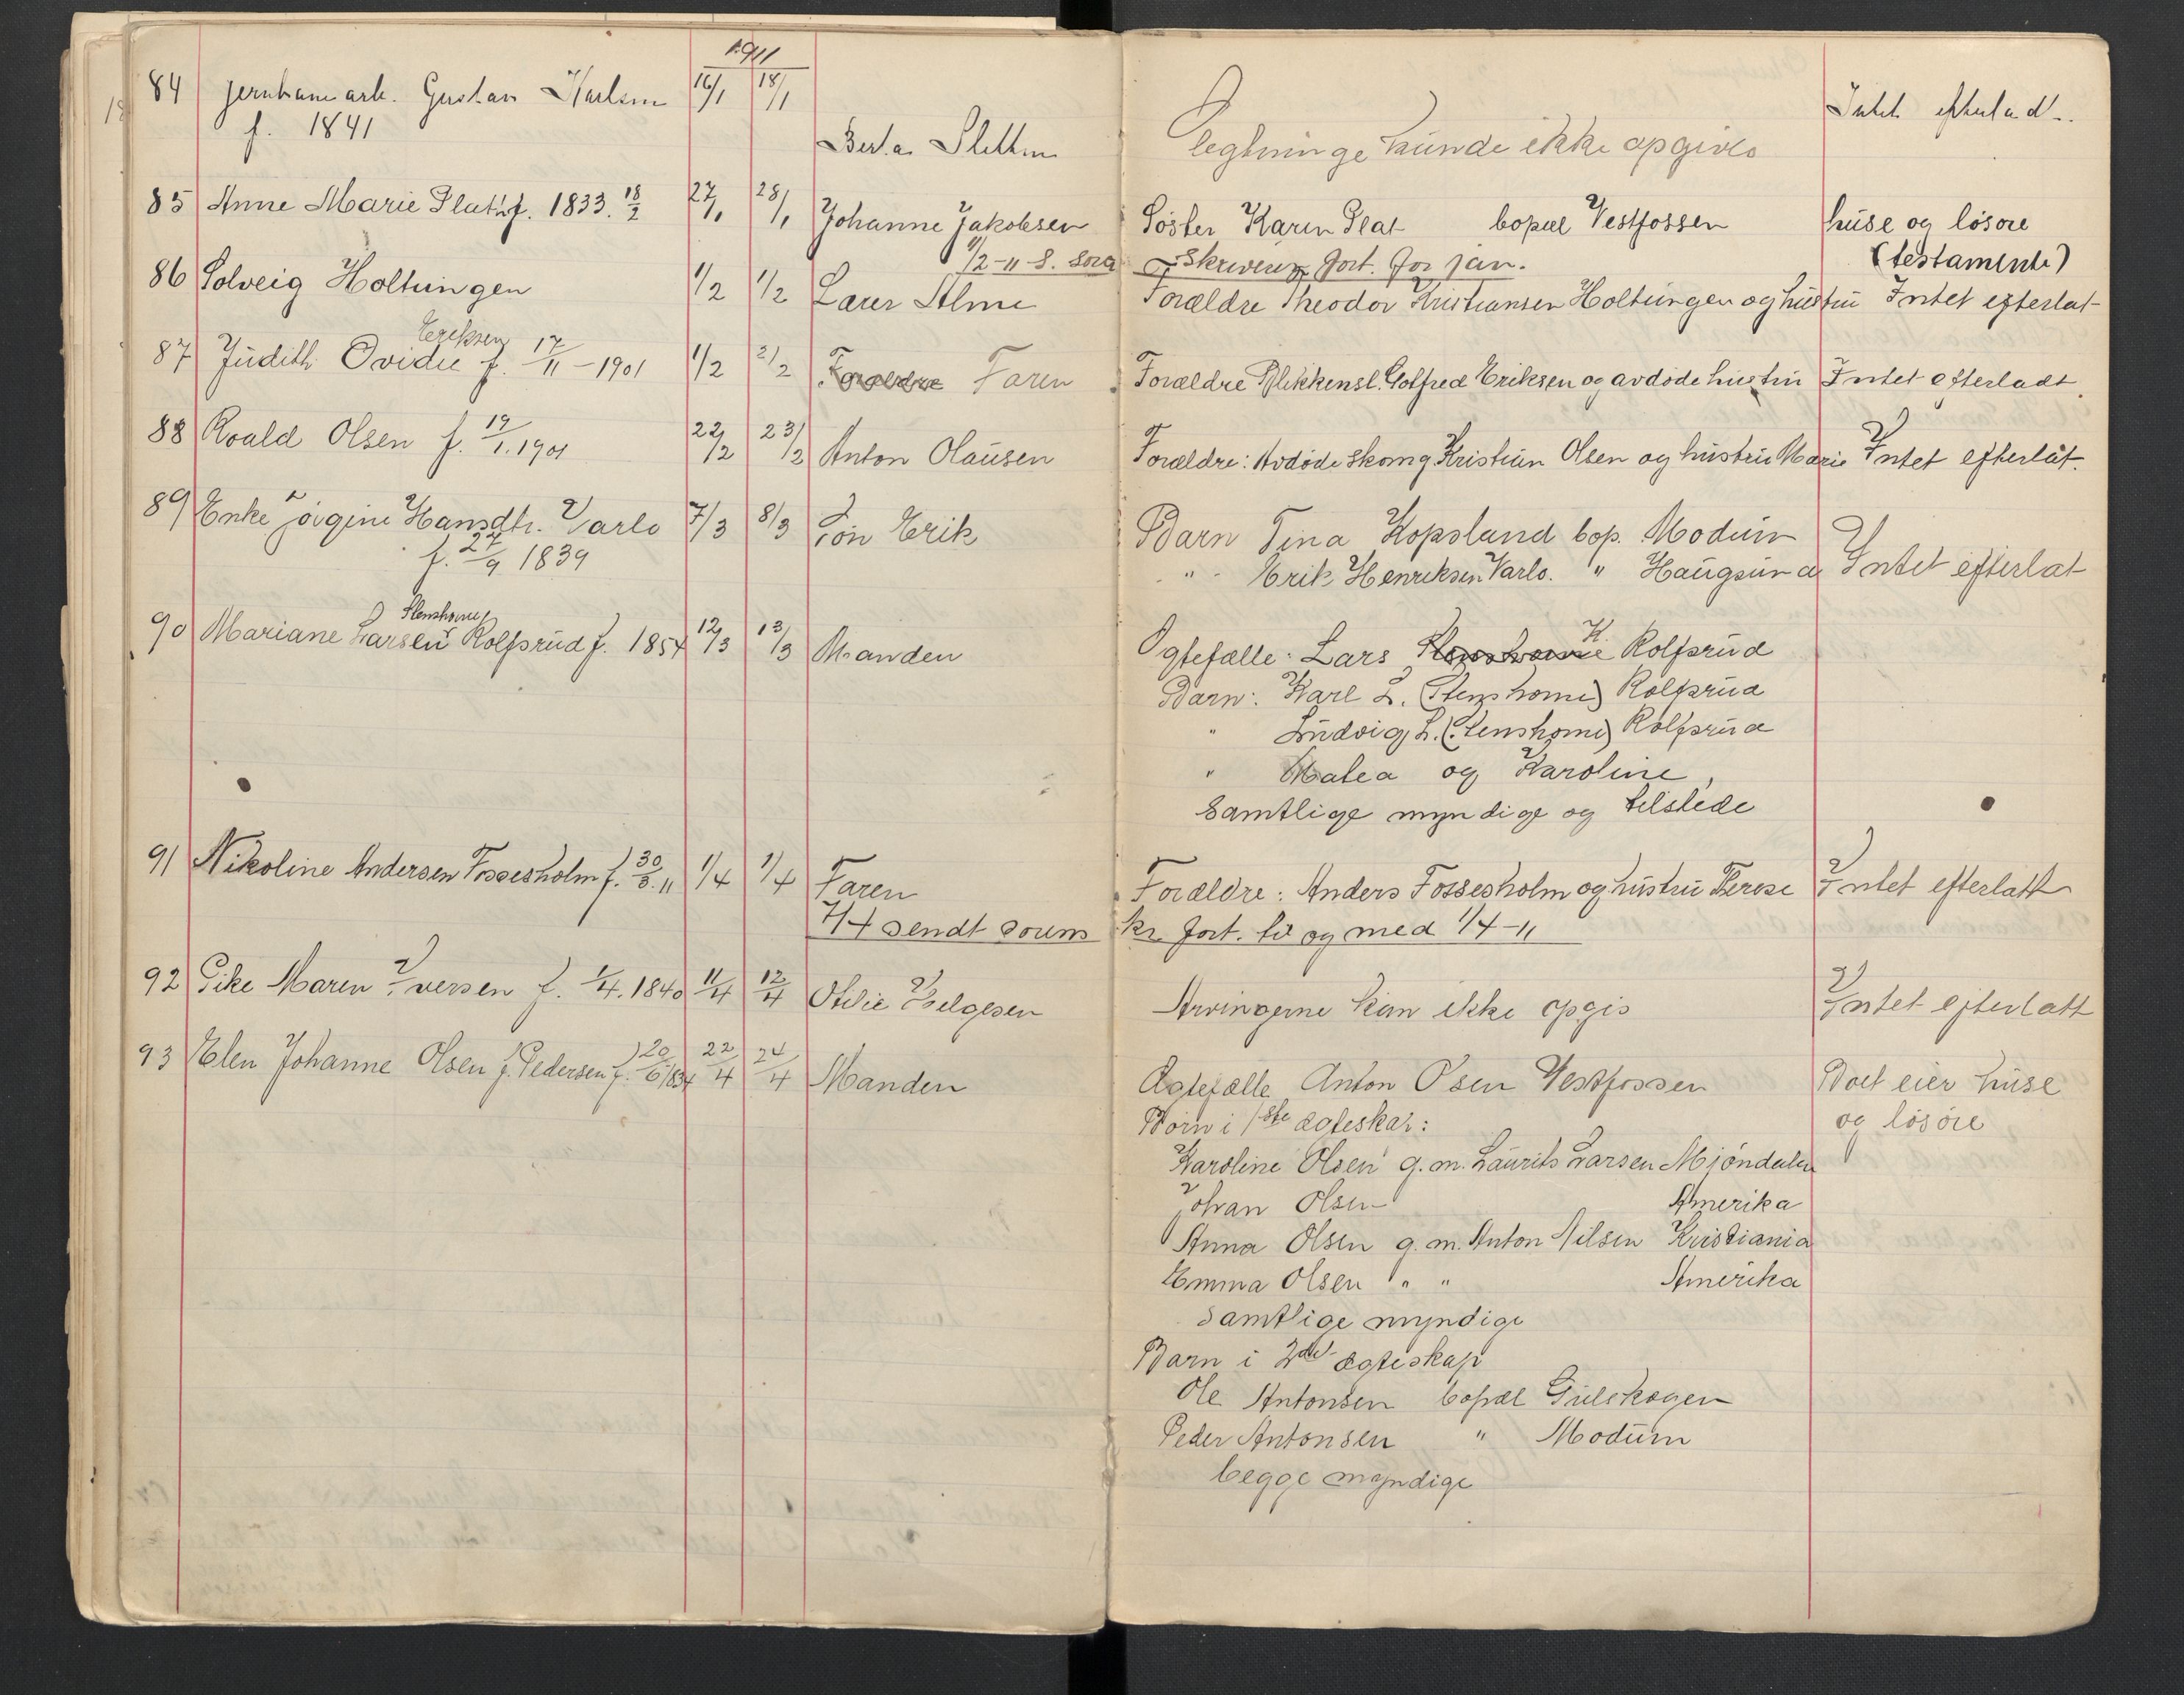 1911
84 jernbanearb. Gustav Karlsen 16/1 18/1 Intet efterlad
f. 1841 Berta Sletten Slegtninge kunde ikke opgives
85 Anne Marie Plat f. 1833. 18/2 27/1 28/1 Johanne Jakobsen Søster Karen Plat bopæl Vestfossen huse og løsøre
1/2-11 S. Sorenskriveren fort. for jan. (testamente)
86 Solveig Holtungen 1/2 1/2 Lærer Alme Forældre Theodor Kristiansen Holtungen og hustru Intet efterlat
Eriksen
87 Judith Ovidie f. 17/11-1901 1/2 2/2 Forældre Faren Forældre Blikkensl. Golfred Eriksen og avdøde hustru Intet efterladt
88 Roald Olsen f. 19/1.1901 22/2 23/2 Anton Olausen Forældre: Avdøde skomg Kristian Olsen og hustru Marie Intet efterlat.
89 Enke Jørgine Hansdtr. Varlo 7/3 8/3 Søn Erik Barn Tina Kopsland bop. Modum
f. 27/9 1839 " Erik Henriksen Varlo. " Haugsund Intet efterlat
Stenshorne
90 Mariane Larsen Rolfsrud f. 1854 12/3 13/3 Manden Egtefælle: Lars K. Rolfsrud
Barn: Karl L. (Stenshorne) Rolfsrud
" Ludvig L. (Stenshorne) Rolfsrud
" Matea og Karoline,
Samtlige myndige og tilstede
91 Nikoline Andersen Fossesholm f. 30/3.11 1/4 1/4 Faren Forældre: Anders Fossesholm og hustru Therese Intet efterlatt
7/4 sendt sorenskr. fort. til og med 1/4-11
92 Pike Maren Iversen f. 1/4.1840 11/4 12/4 Otilie Helgesen Arvingerne kan ikke opgis Intet efterlatt
93 Elen Johanne Olsen f. Pedersen f. 20/6 1834 22/4 24/4 Manden Ægtefælle Anton Olsen Vestfossen Boet eier huse
Børn i 1ste ægteskap: og løsøre
Karoline Olsen g.m. Laurits Larsen Mjøndalen
Johan Olsen Amerika
Anna Olsen g.m. Anton Nilsen Kristiania
Emma Olsen " " Amerika
Samtlige myndige
Barn i 2det ægteskap
Ole Antonsen bopæl Gulskogen
Peder Antonsen " Modum
begge myndige